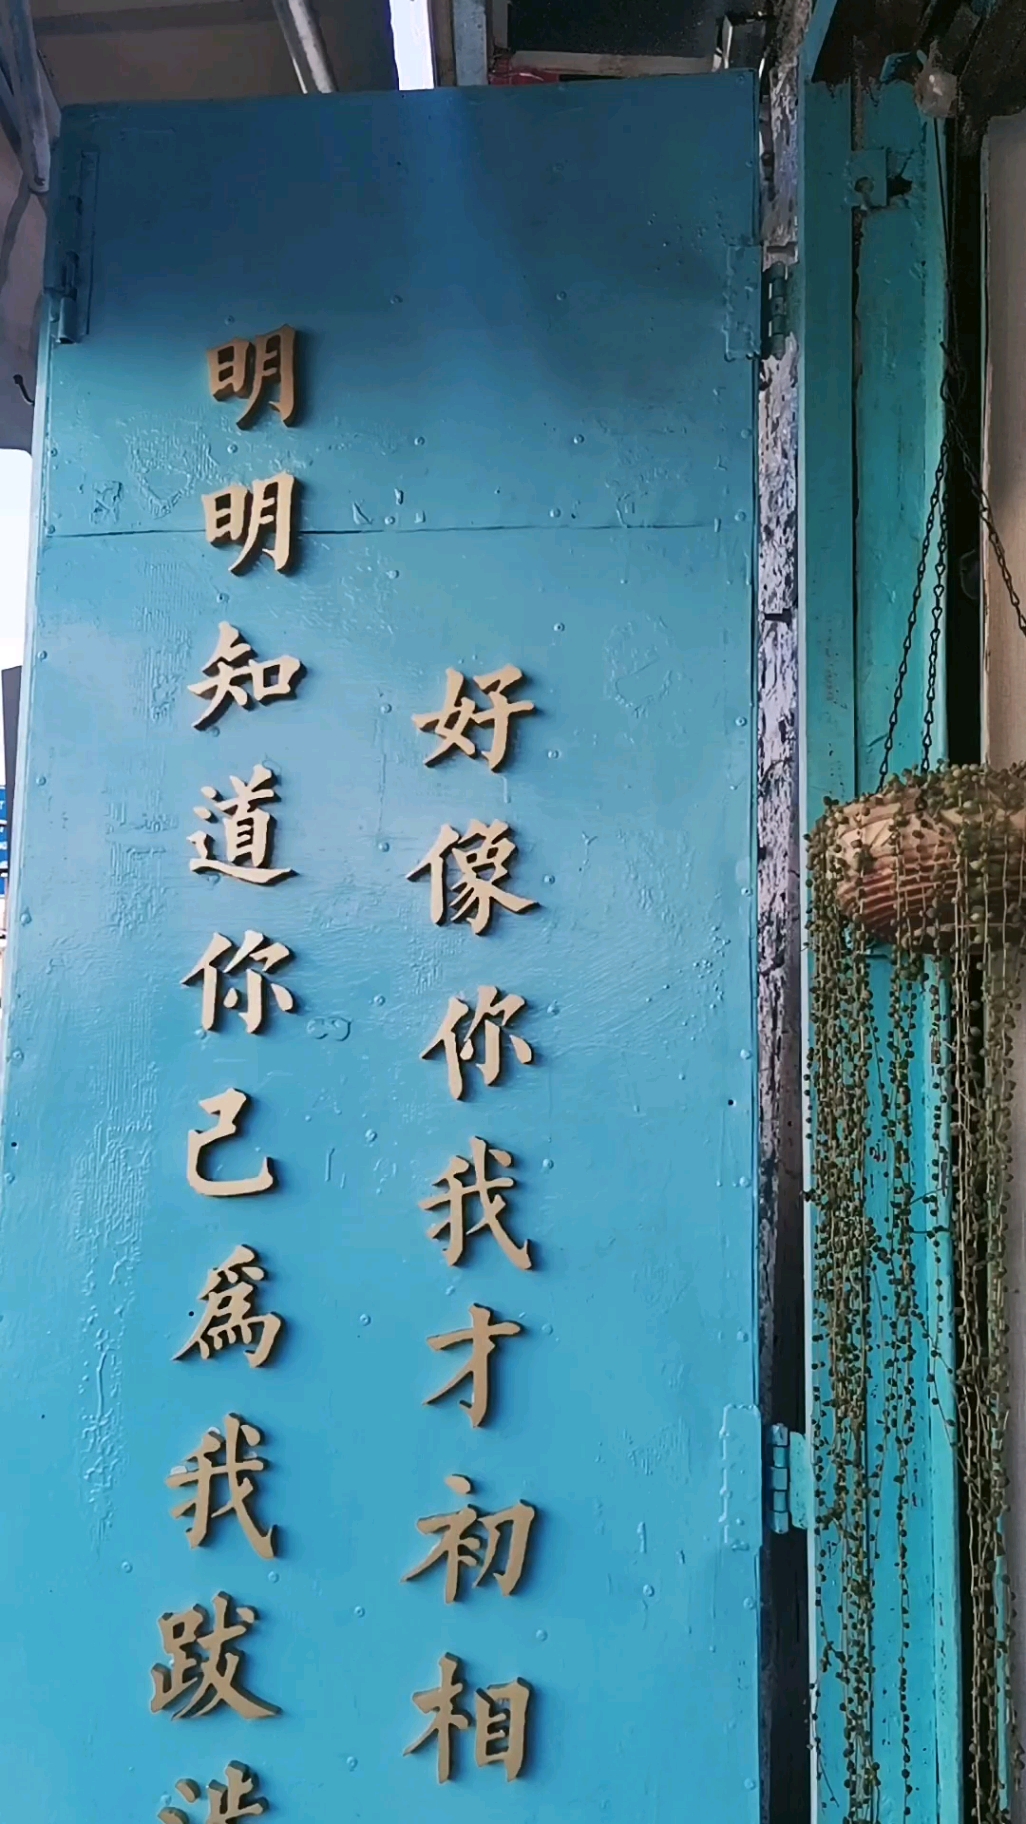 明明知道你已為我跋涉
好像你我才初相